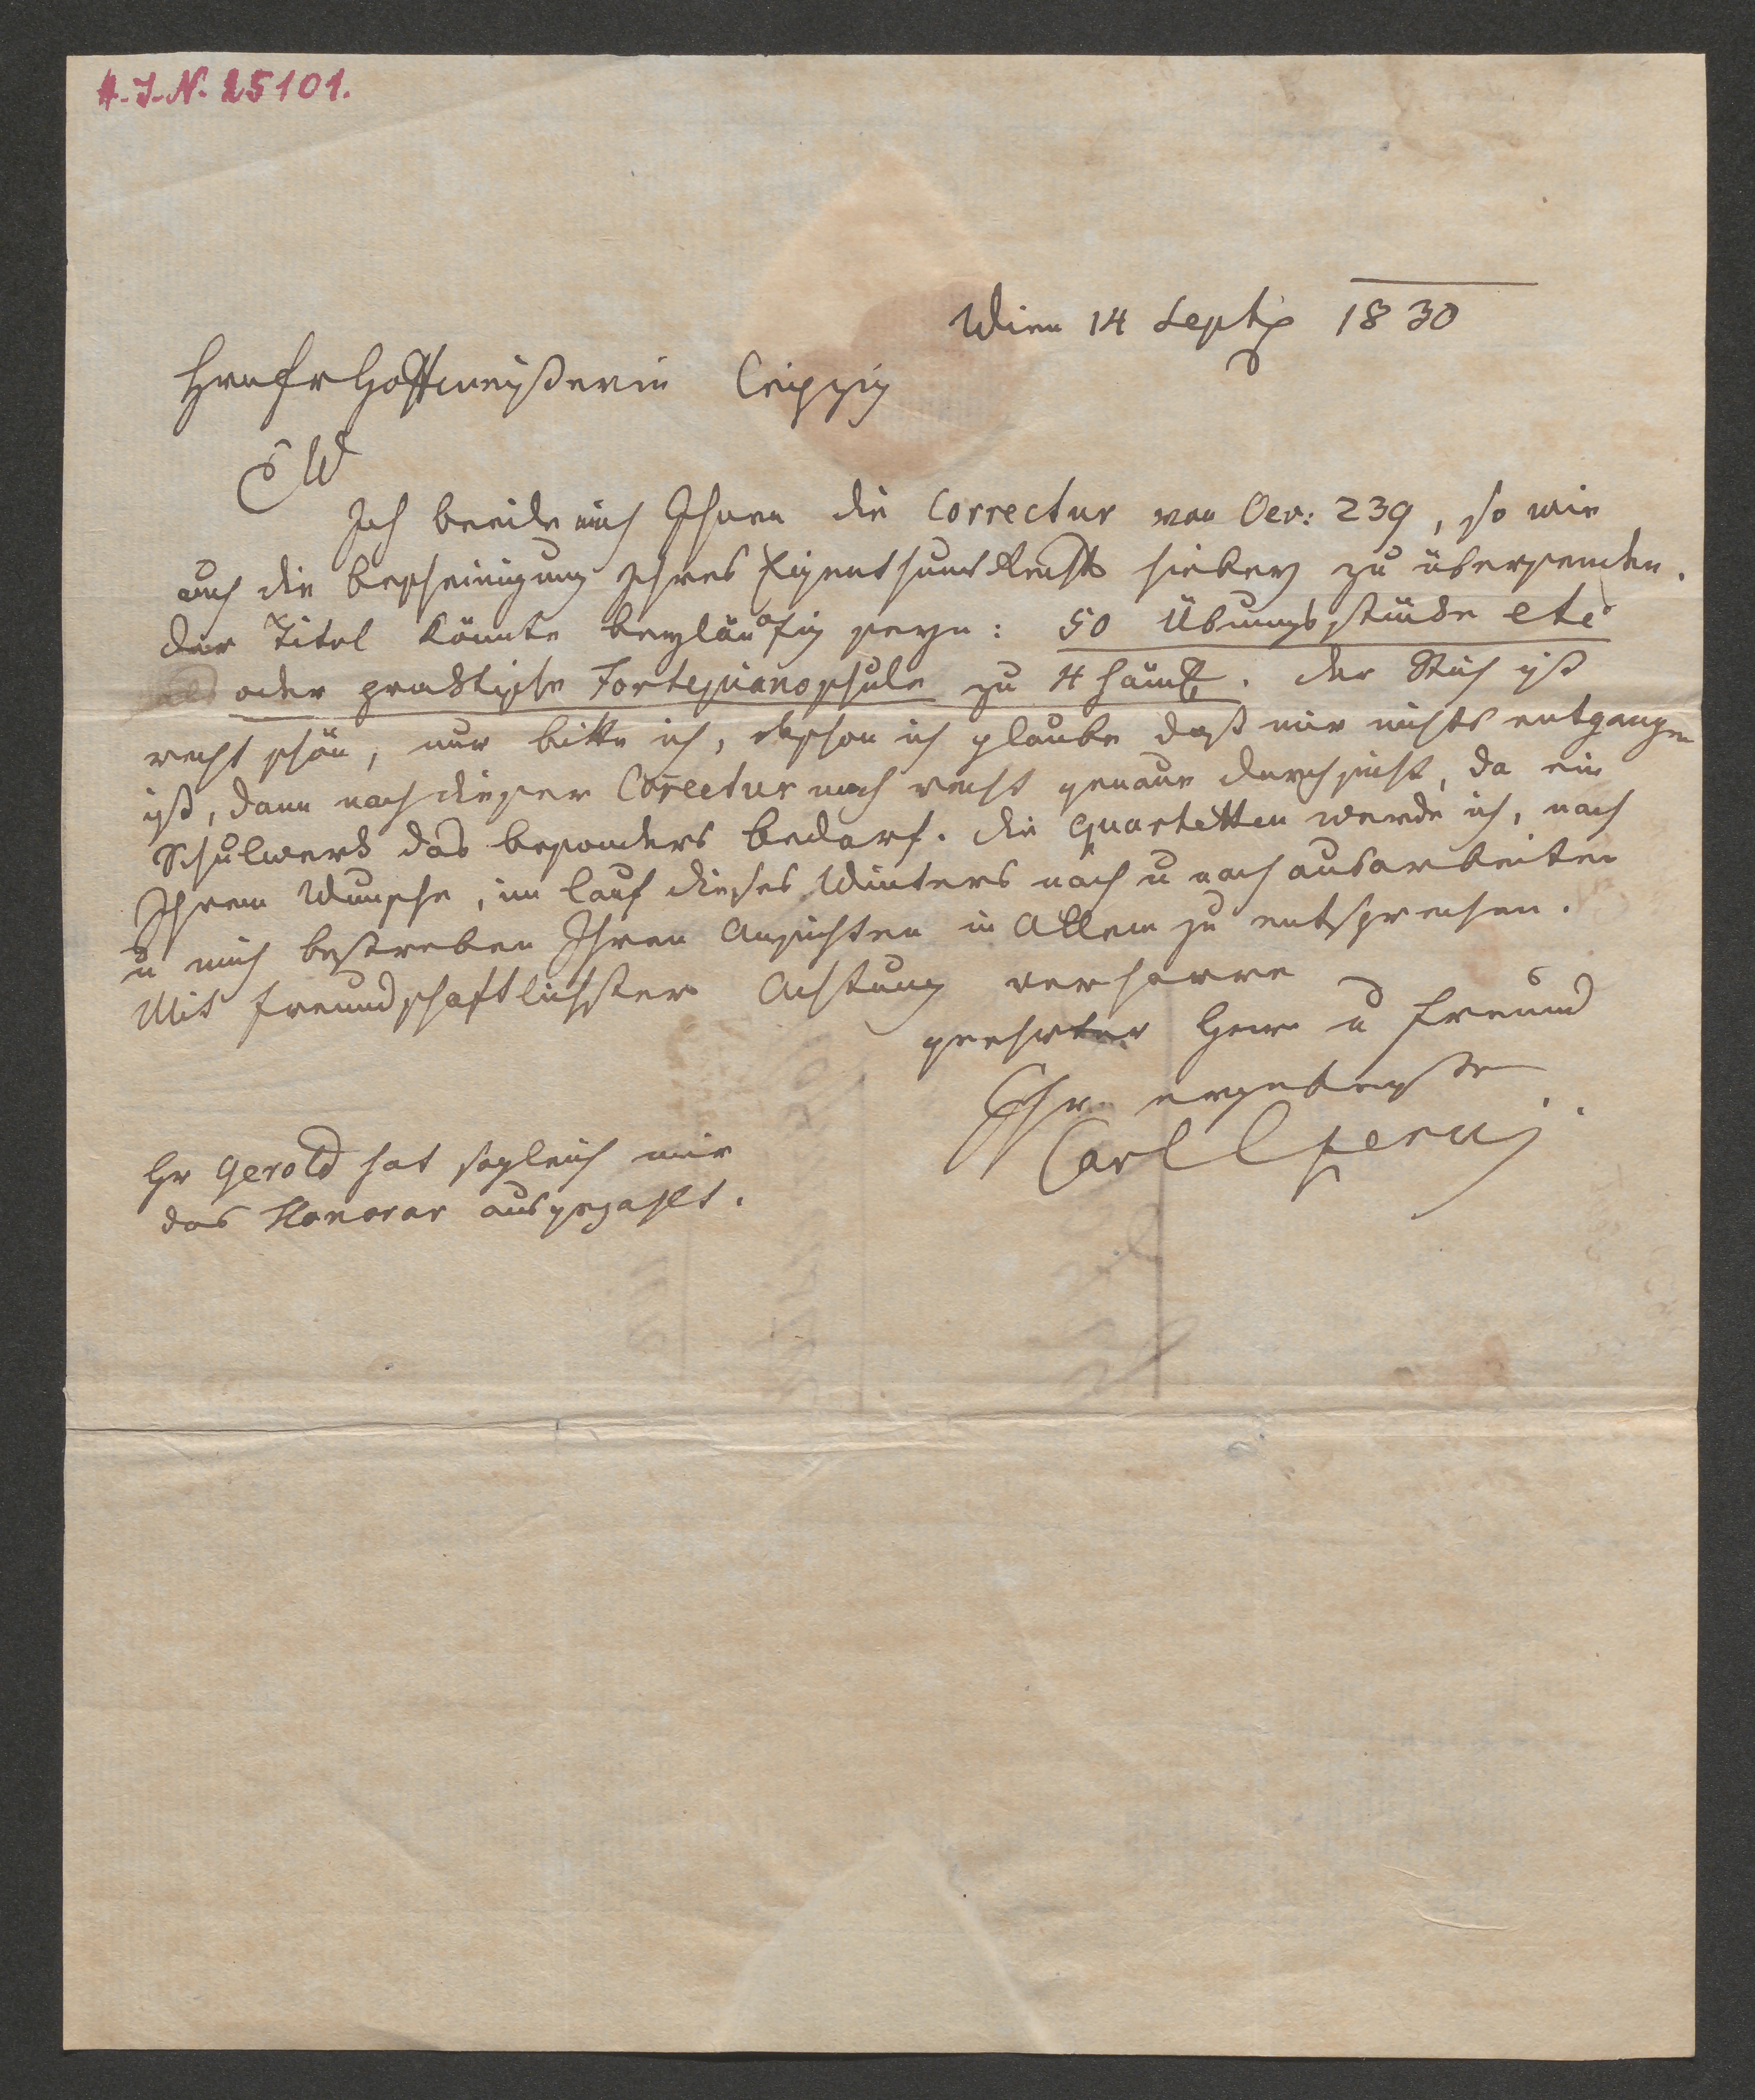 H.I.N. 25101.
Wien 14 Septb 1830
Hrn Fr Hoffmeister in Leipzig
EW
Ich beeile mich Ihnen die Correctur von Oev: 239, so wie
auch die Bescheinigung Ihres Eigenthums Rechts hiebey zu übersenden.
Der Titel könnte beyläufig seyn: 50 Übungsstücke etc
oder praktische Fortepianoschule zu 4 Händ. Der Stich ist
recht schön, nur bitte ich, obschon ich glaube daß mir nichts entgangen
ist, dann nach dieser Correctur noch recht genaue Durchsicht, da ein
Schulwerk das besonders bedarf. Die Quartetten werde ich, nach
Ihrem Wunsche, im Lauf dieses Winters nach u nach ausarbeiten
u mich bestreben Ihren Ansichten in Allem zu entsprechen.
Mit freundschaftlichster Achtung verharre
geehrter Herr u Freund
Ihr ergebenster
Carl Czerny
Hr Gerold hat sogleich mir
das Honorar ausgezahlt.